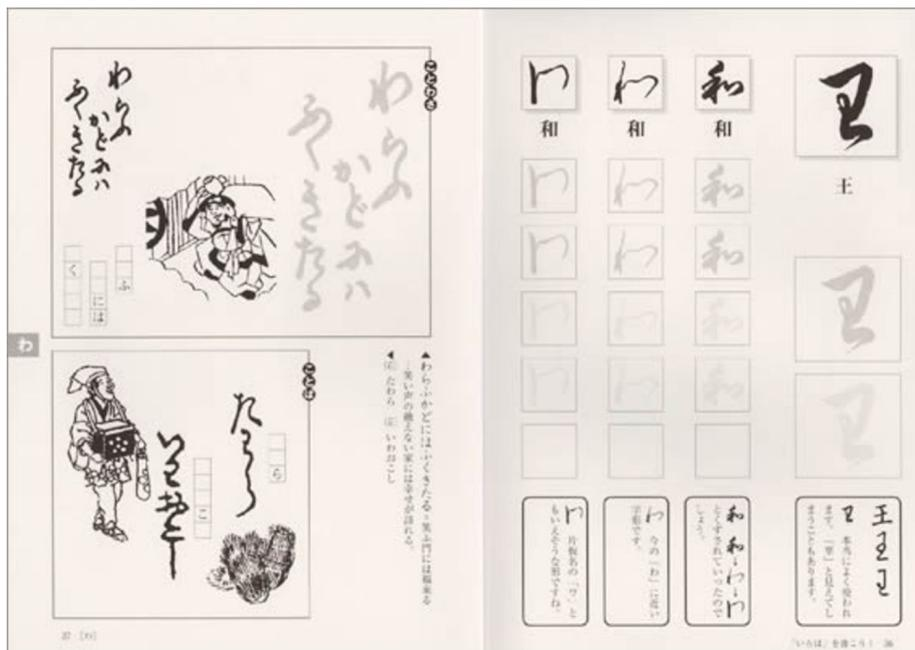 王
和
和
和
本当によく使われ
ます。「里」と見えてし
まうこともあります。
とくずされていったので
しょう。
今の「わ」に近い
字形です。
片仮名の「ワ」と
もいえそうな形ですね。
「いろは」を書こう! 36
ことわざ
わらふ
かどには
ふくきたる
わらふ
かどには
ふくきたる
ふ
には
く
▲わらふかどにはふくきたる=笑ふ門には福来る
…笑い声の絶えない家には幸せが訪れる。
◀(右)たわら (左)いわおこし
ことば
たわら
ら
いわおこし
こ
わ
37 [わ]